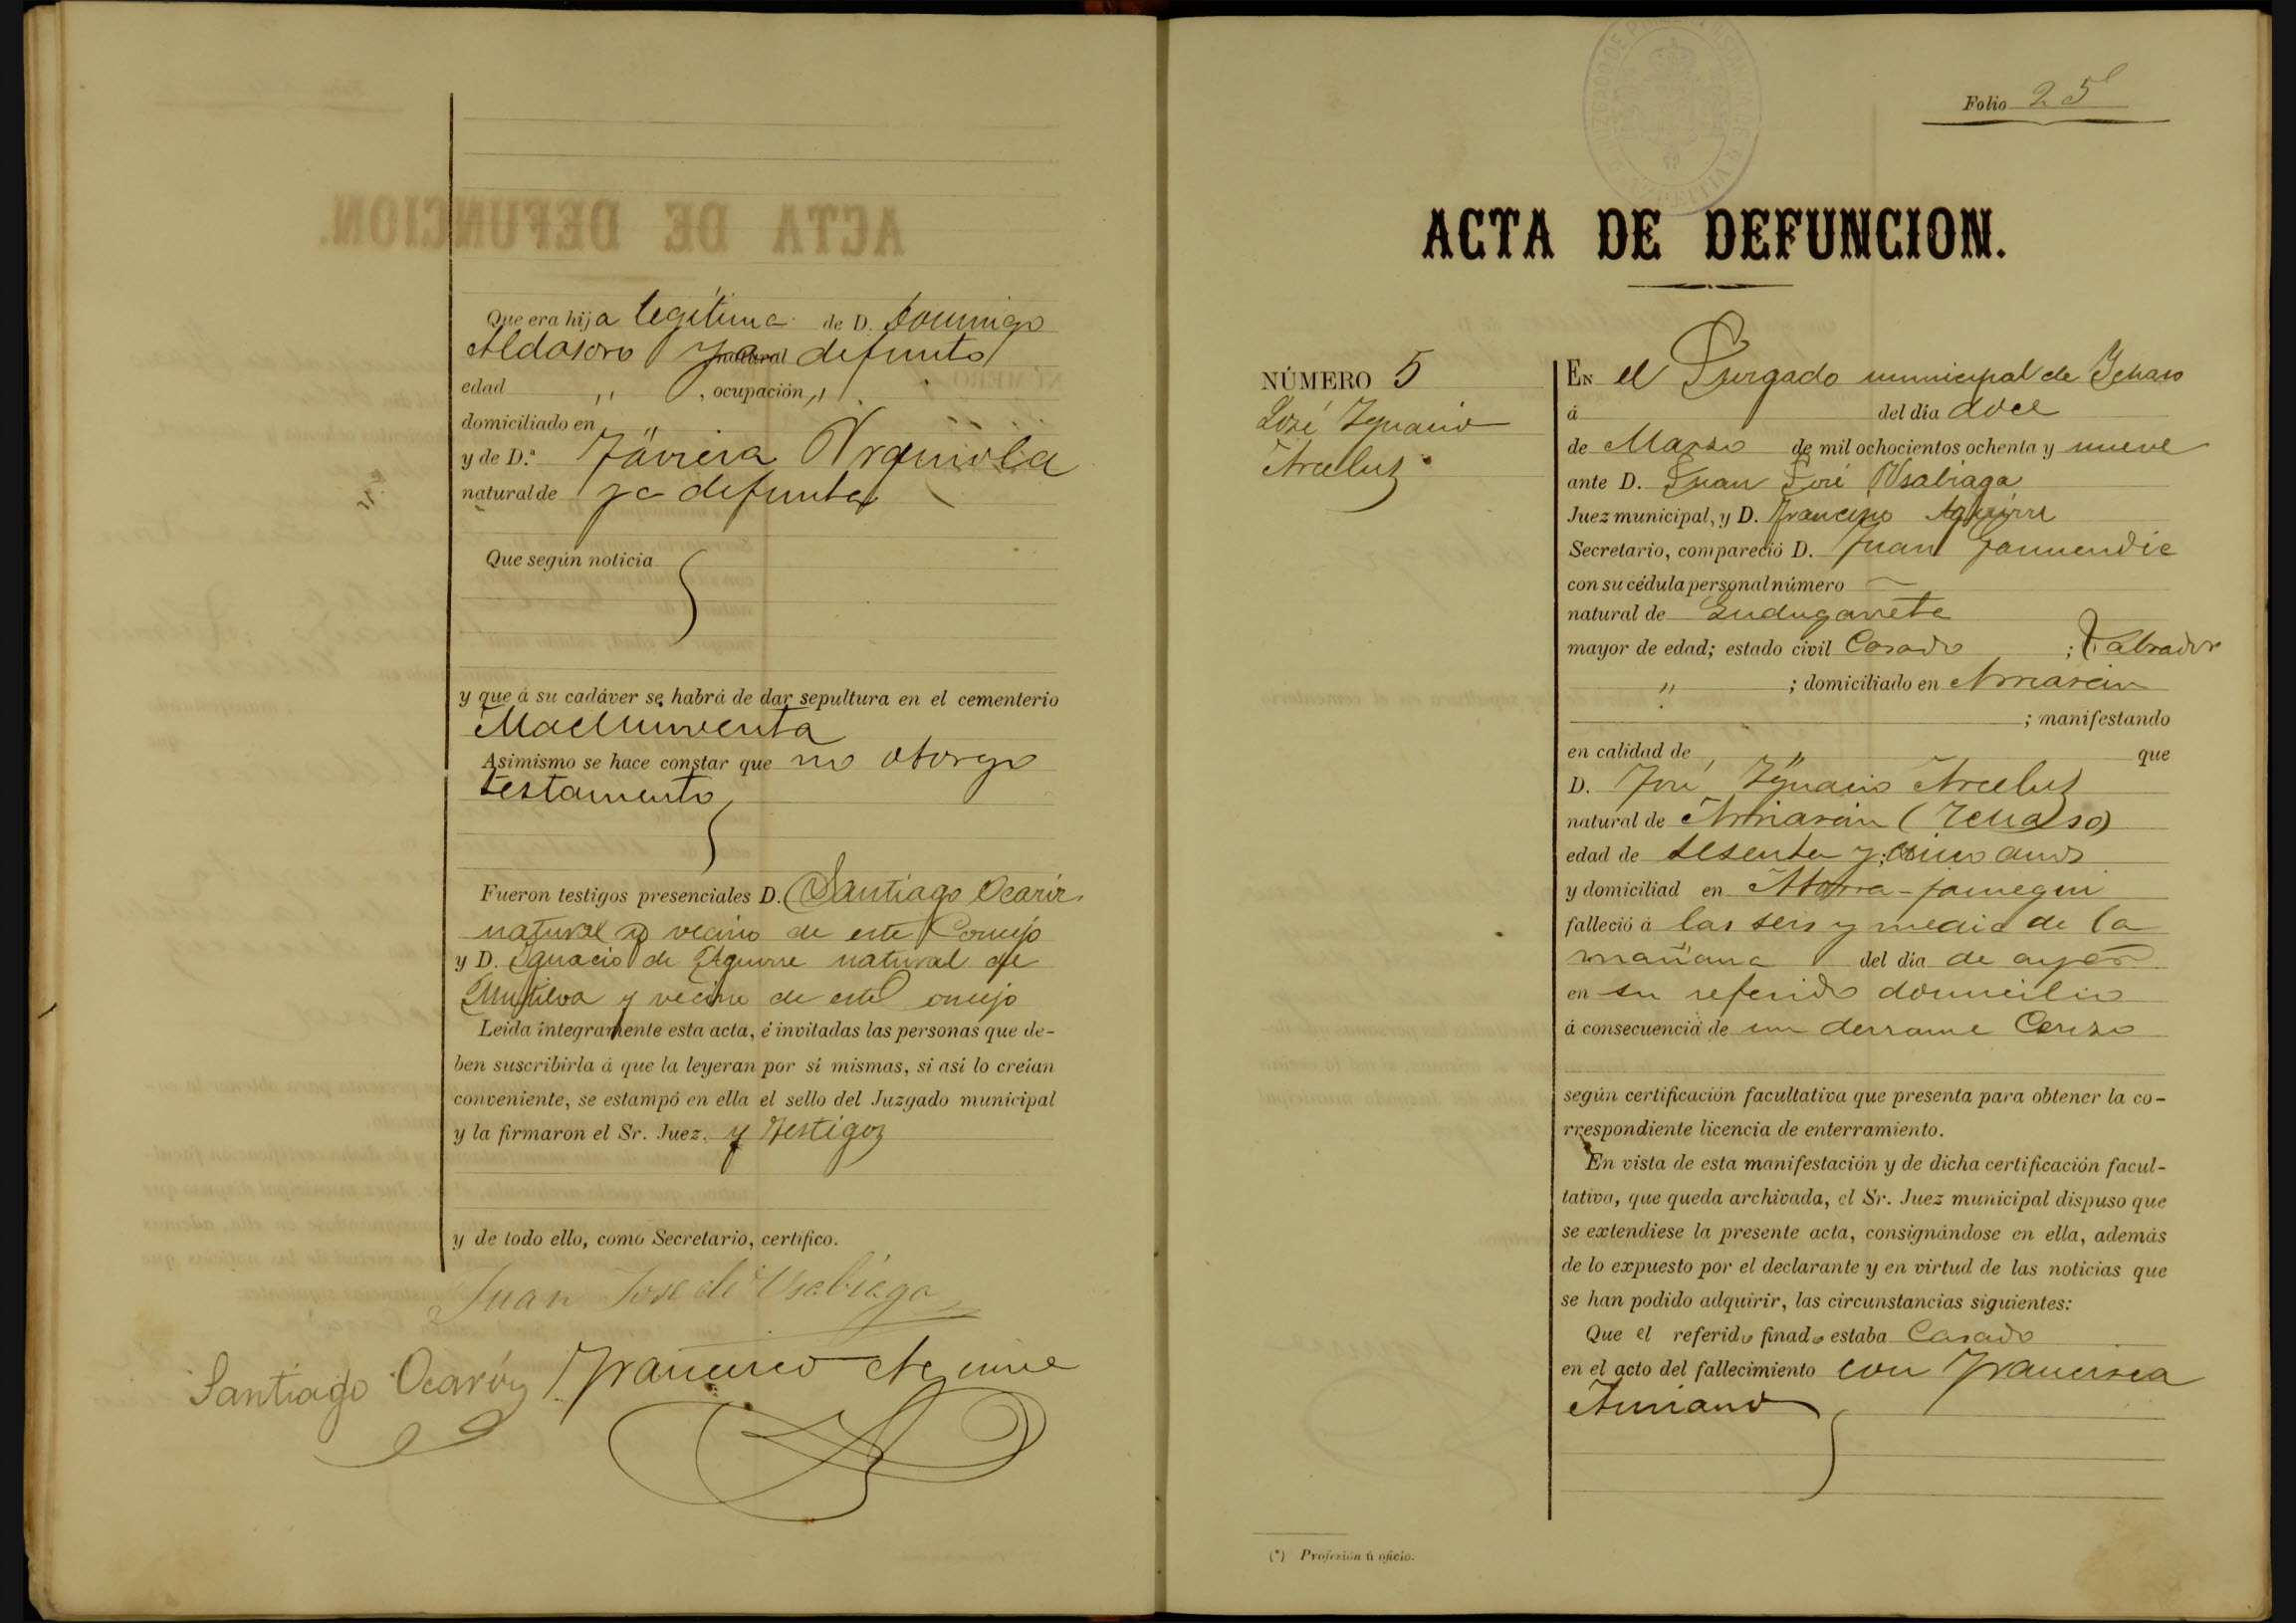 Que era hija legítima de D. Domingo
Aldasoro ya natural defunto
edad ,, , ocupación ,,
domiciliado en ,,
y de D.ª Javiera Urquiola
natural de ya defunta
Que según noticia
y que á su cadáver se habrá de dar sepultura en el cementerio
Machinventa
Asimismo se hace constar que no otorgo
testamento
Fueron testigos presenciales D. Santiago Ocariz
natural y vecino de este Concejo
y D. Ignacio de Aguirre natural de
Mutiloa y vecino de este Concejo
Leida íntegramente esta acta, é invitadas las personas que de-
ben suscribirla á que la leyeran por sí mismas, si así lo creían
conveniente, se estampó en ella el sello del Juzgado municipal
y la firmaron el Sr. Juez. y Testigos
y de todo ello, como Secretario, certifico.
Juan José de Usabiaga
Santiago Ocariz Francisco Aguirre
Folio 25
ACTA DE DEFUNCION.
NÚMERO 5
José Ygnacio
Arceluz
EN el Juzgado municipal de Ychaso
á del día doce
de Marzo de mil ochocientos ochenta y nueve
ante D. Juan José Usabiaga
Juez municipal, y D. Francisco Aguirre
Secretario, compareció D. Juan Jauuendia
con su cédula personal número
natural de Gudugarreta
mayor de edad; estado civil Casado ; Labrador
,, ; domiciliado en Arriaran
; manifestando
en calidad de ,, que
D. José Ygnacio Arceluz
natural de Arriaran (Ychaso)
edad de sesenta y cinco años
y domiciliad en Atarra-jauregui
falleció á las seis y media de la
mañana del día de ayer
en su referido domicilio
á consecuencia de un derrame Ceroso
según certificación facultativa que presenta para obtener la co-
rrespondiente licencia de enterramiento.
En vista de esta manifestación y de dicha certificación facul-
tativa, que queda archivada, el Sr. Juez municipal dispuso que
se extendiese la presente acta, consignándose en ella, además
de lo expuesto por el declarante y en virtud de las noticias que
se han podido adquirir, las circunstancias siguientes:
Que el referido finado estaba Casado
en el acto del fallecimiento con Francisca
(*) Profesión ú oficio.